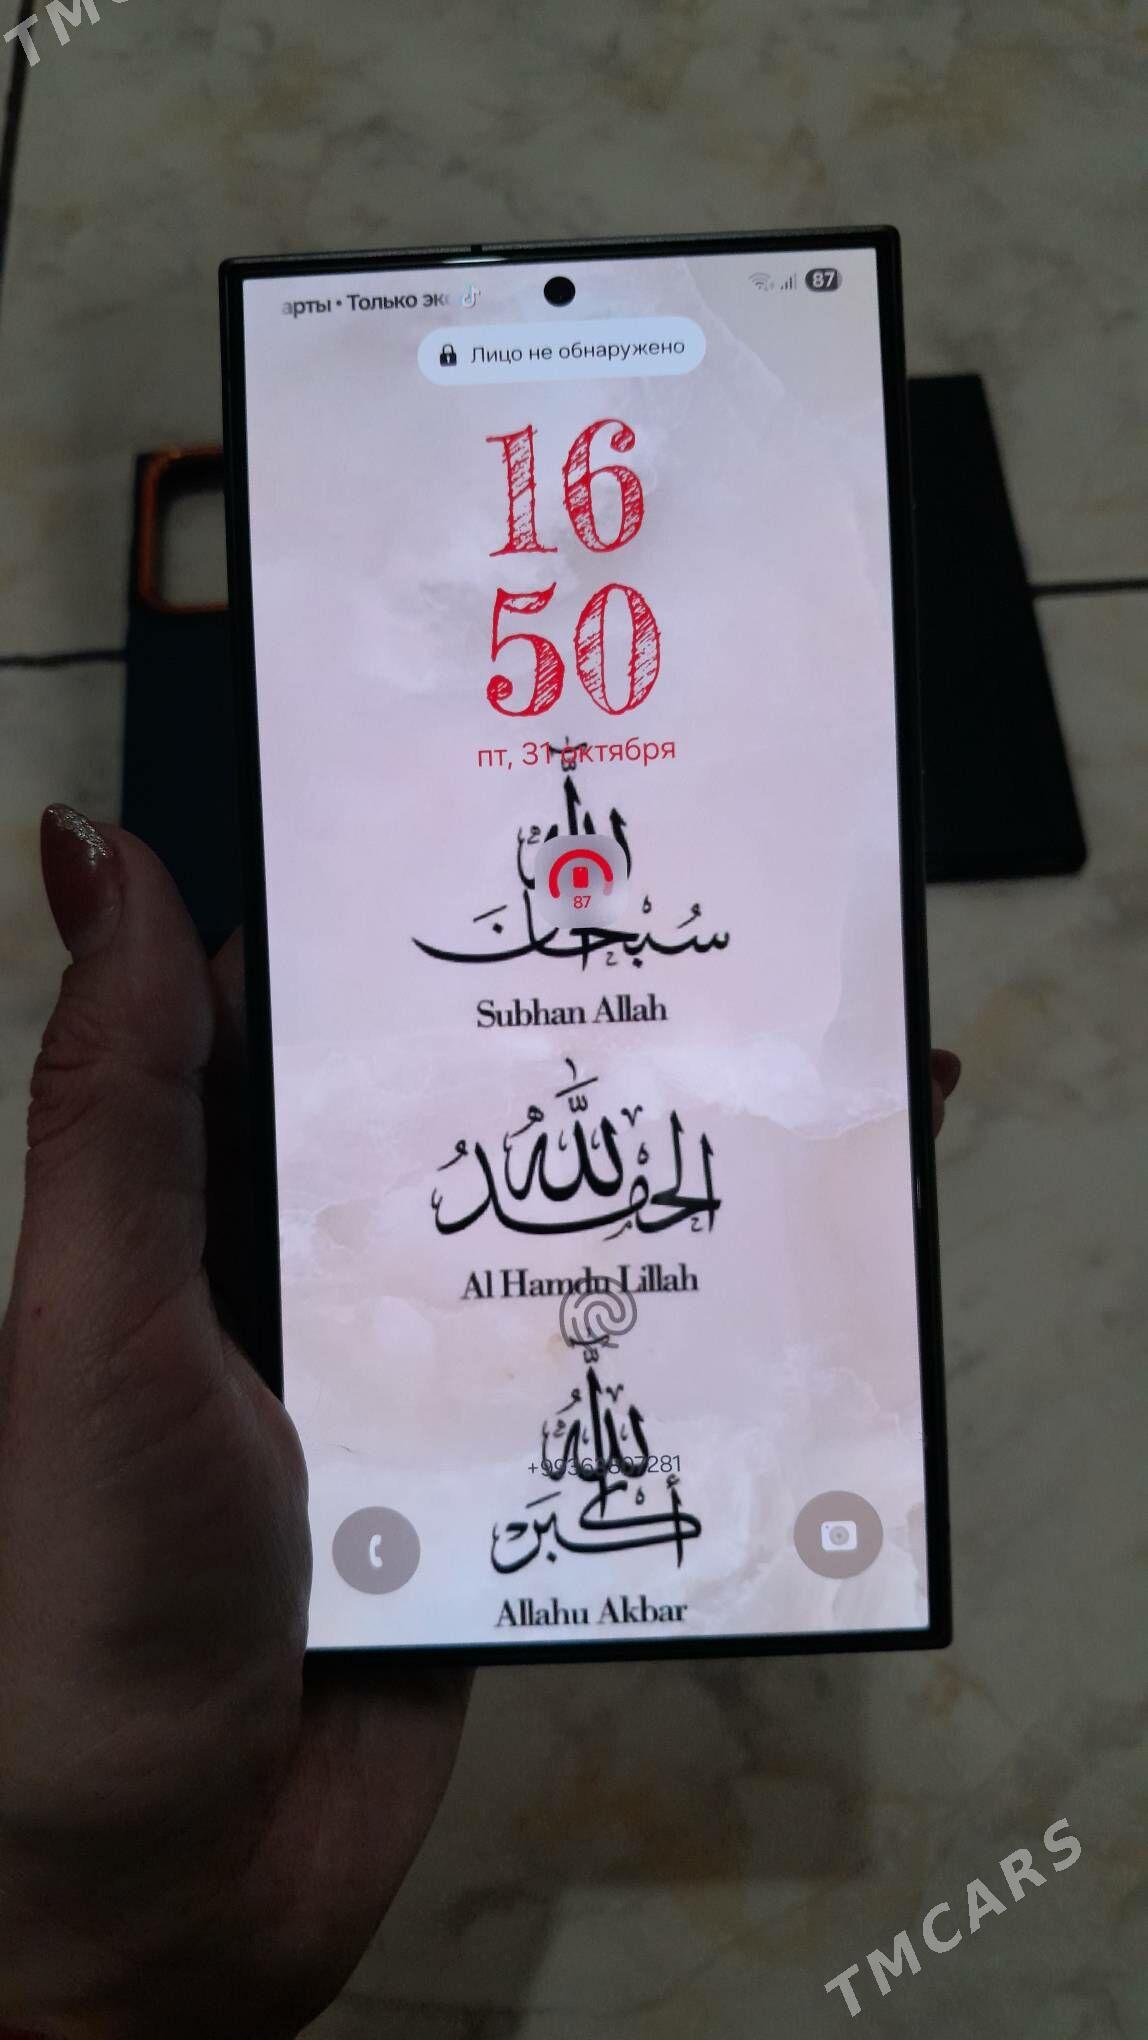 арты • Только эк
87
Лицо не обнаружено
16
50
пт, 31 октября
87
سُبْحَانَ اللّٰه
Subhan Allah
الحَمْدُ لِلّٰه
Al Hamdu Lillah
اللّٰهُ أَكْبَرُ
Allahu Akbar
TMCARS